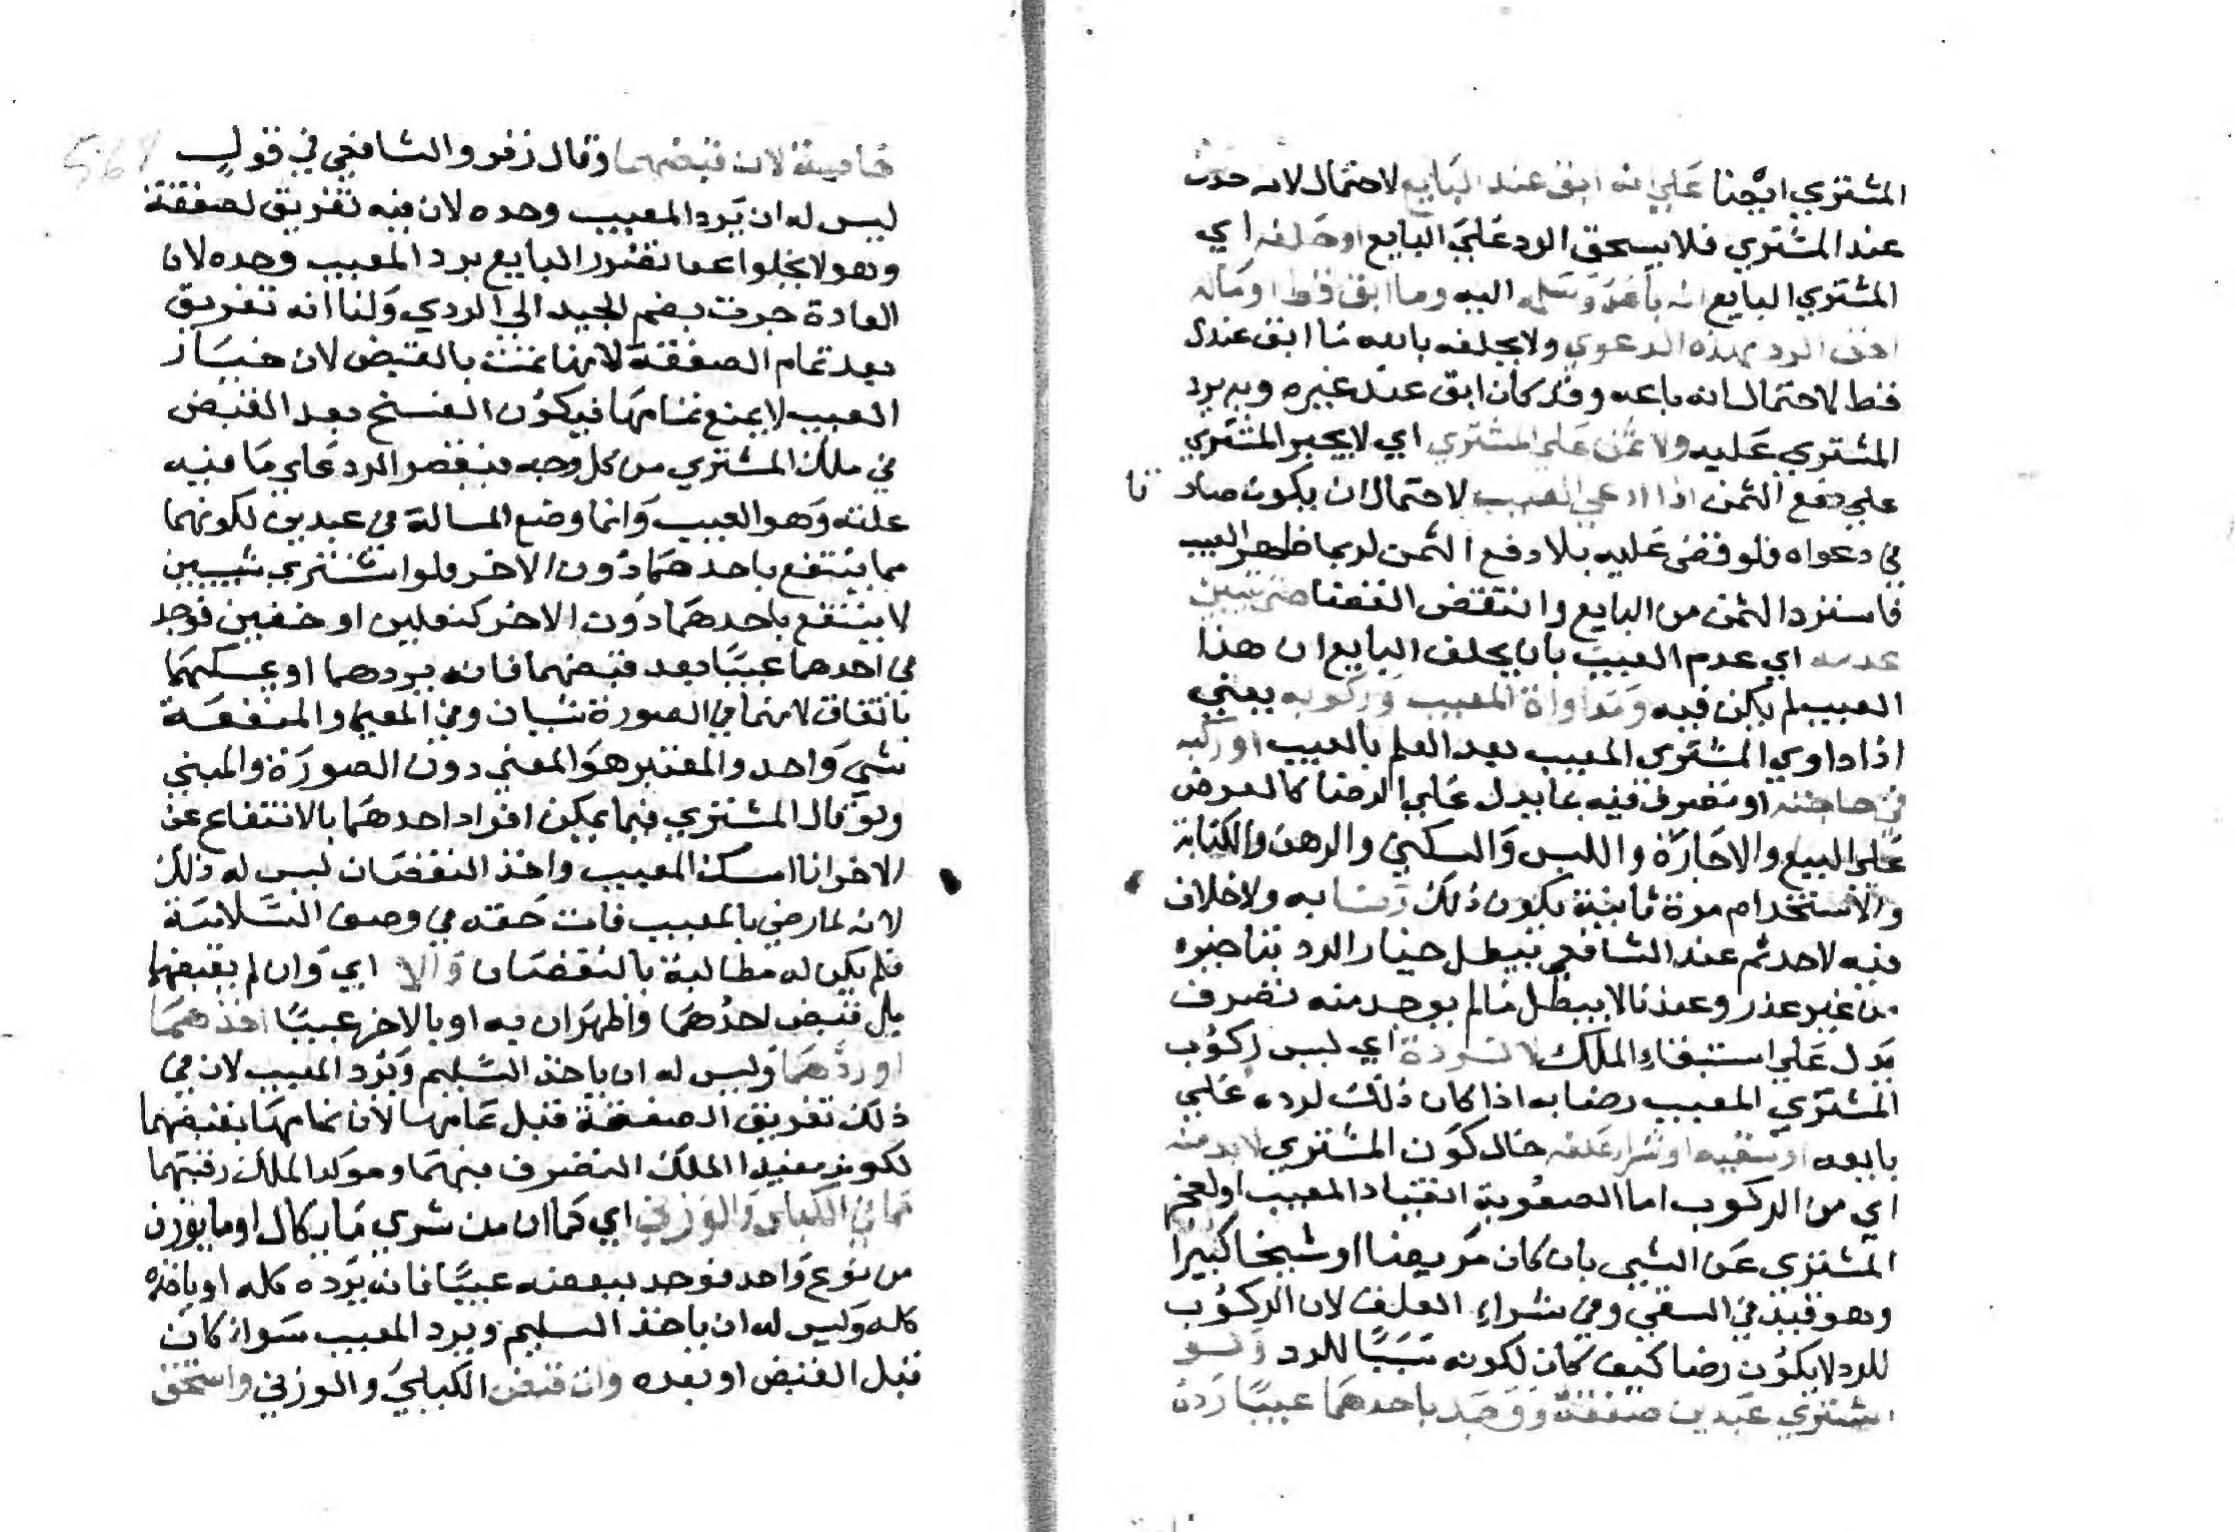 المشتري ايضا علي انه ابق عند البايع لاحتمال لانه حدث
عند المشتري فلا يستحق الرد علي البايع او حلفه اي
المشتري البايع انه باعه وسلمه اليه وما ابق قط او ماله
حق الرد بهذه الدعوي ولا يحلفه بالله ما ابق عندك
قط لاحتمال انه باعه وقد كان ابق عند غيره وبه يرد
المشتري عليه ولا ثمن علي المشتري اي لا يجبر المشتري
علي دفع الثمن اذا ادعي العيب لاحتمال ان يكون صادقا
في دعواه فلو قضي عليه بلا دفع الثمن لربما ظهر العيب
فاسترد الثمن من البايع وانتقض القضا حتي يتبين
عدمه اي عدم العيب بان يحلف البايع ان هذا
العيب لم يكن فيه ومداواة المعيب وركوبه يعني
اذا داوي المشتري المعيب بعد العلم بالعيب او ركبه
في حاجته او تصرف فيه بما يدل علي الرضا كالعرض
علي البيع والاجارة واللبس والسكني والرهن والكتابة
والاستخدام مرة ثانية يكون ذلك رضا به ولا خلاف
فيه لاحد ثم عند الشافعي يبطل خيار الرد بتاخيره
من غير عذر وعندنا لا يبطل ما لم يوجد منه تصرف
يدل علي استبقاء الملك لا لرده اي ليس ركوب
المشتري المعيب رضا به اذا كان ذلك لرده علي
بايعه او سقيه او شراء علفه حال كون المشتري لا بد منه
اي من الركوب اما الصعوبة انقياد المعيب او لعجز
المشتري عن المشي بان كان مريضا او شيخا كبيرا
وهو قيد في السقي وفي شراء العلف لان الركوب
للرد لا يكون رضا كيف كان لكونه سببا للرد ولو
اشتري عبدين صفقة ووجد باحدهما عيبا رده
خاصة لان قبضهما وقال زفر والشافعي في قول
ليس له ان يرد المعيب وحده لان فيه تفريق لصفقة
وهو لا يخلوا عما تضرر البايع برد المعيب وحده لان
العادة جرت بضم الجيد الي الردي ولنا انه تفريق
بعد تمام الصفقة لانها تمت بالقبض لان خيار
العيب لا يمنع تمامها فيكون الفسخ بعد القبض
في ملك المشتري من كل وجه فيقصر الرد علي ما فيه
علته وهو العيب وانما وضع المسالة في عبدين لكونهما
مما ينتفع باحدهما دون الاخر فلو اشتري شيين
لا ينتفع باحدهما دون الاخر كنعلين او خفين فوجد
في احدهما عيبا بعد قبضهما فانه يردهما او يمسكهما
باتفاق لانهما في الصورة شيان وفي المعني والمنفعة
شي واحد والمعتبر هو المعني دون الصورة والمبني
ولو قال المشتري فيما يمكن افراد احدهما بالانتفاع عن
الاخر انا امسك المعيب واخذ النقصان ليس له ذلك
لانه لما رضي بالمعيب فات حقه في وصف السلامة
فلم يكن له مطالبة بالنقصان والا اي وان لم يقبضهما
بل قبض احدهما وظهر ان به او بالاخر عيبا اخذهما
او ردهما وليس له ان ياخذ السليم ويرد المعيب لان في
ذلك تفريق الصفقة قبل تمامها لان تمامها بقبضهما
لكونه مفيدا الملك التصرف فيهما وموكدا لملك رقبتهما
كما في الكيلي والوزني اي كما ان من شري ما يكال او ما يوزن
من نوع واحد فوجد ببعضه عيبا فانه يرده كله او ياخذه
كله وليس له ان ياخذ السليم ويرد المعيب سواء كان
قبل القبض او بعده وان قبض الكيلي والوزني واستحق